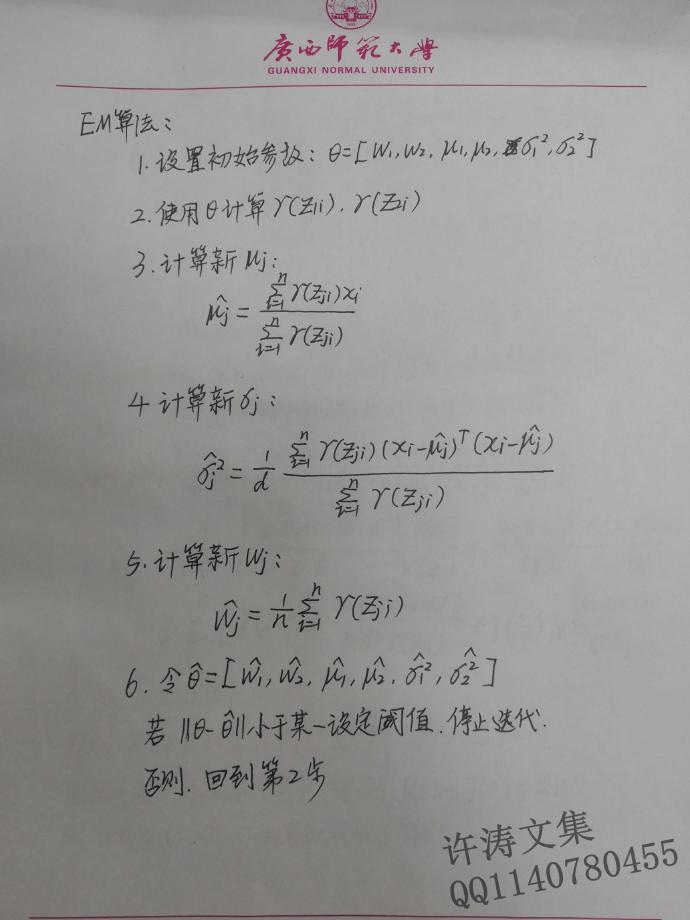 廣西師範大學
GUANGXI NORMAL UNIVERSITY
EM算法:
1. 设置初始参数: θ=[w₁, w₂, μ₁, μ₂, σ₁², σ₂²]
2. 使用θ计算γ(z₁ᵢ), γ(z₂ᵢ)
3. 计算新μⱼ:
μ̂ⱼ = \frac{\sum_{i=1}^{n} γ(z_{ji})x_i}{\sum_{i=1}^{n} γ(z_{ji})}
4 计算新σⱼ:
σ̂ⱼ² = \frac{1}{d} \frac{\sum_{i=1}^{n} γ(z_{ji})(x_i-\hat{μ_j})^T(x_i-\hat{μ_j})}{\sum_{i=1}^{n} γ(z_{ji})}
5. 计算新wⱼ:
ŵⱼ = \frac{1}{n} \sum_{i=1}^{n} γ(z_{ji})
6. 令θ̂=[ŵ₁, ŵ₂, μ̂₁, μ̂₂, σ̂₁², σ̂₂²]
若 ||θ-θ̂|| 小于某一设定阈值, 停止迭代.
否则, 回到第2步
许涛文集
QQ1140780455